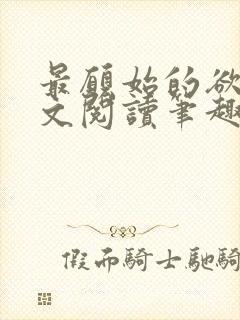 最願始的欲
文閱讀筆趣
假而騎士馳騎